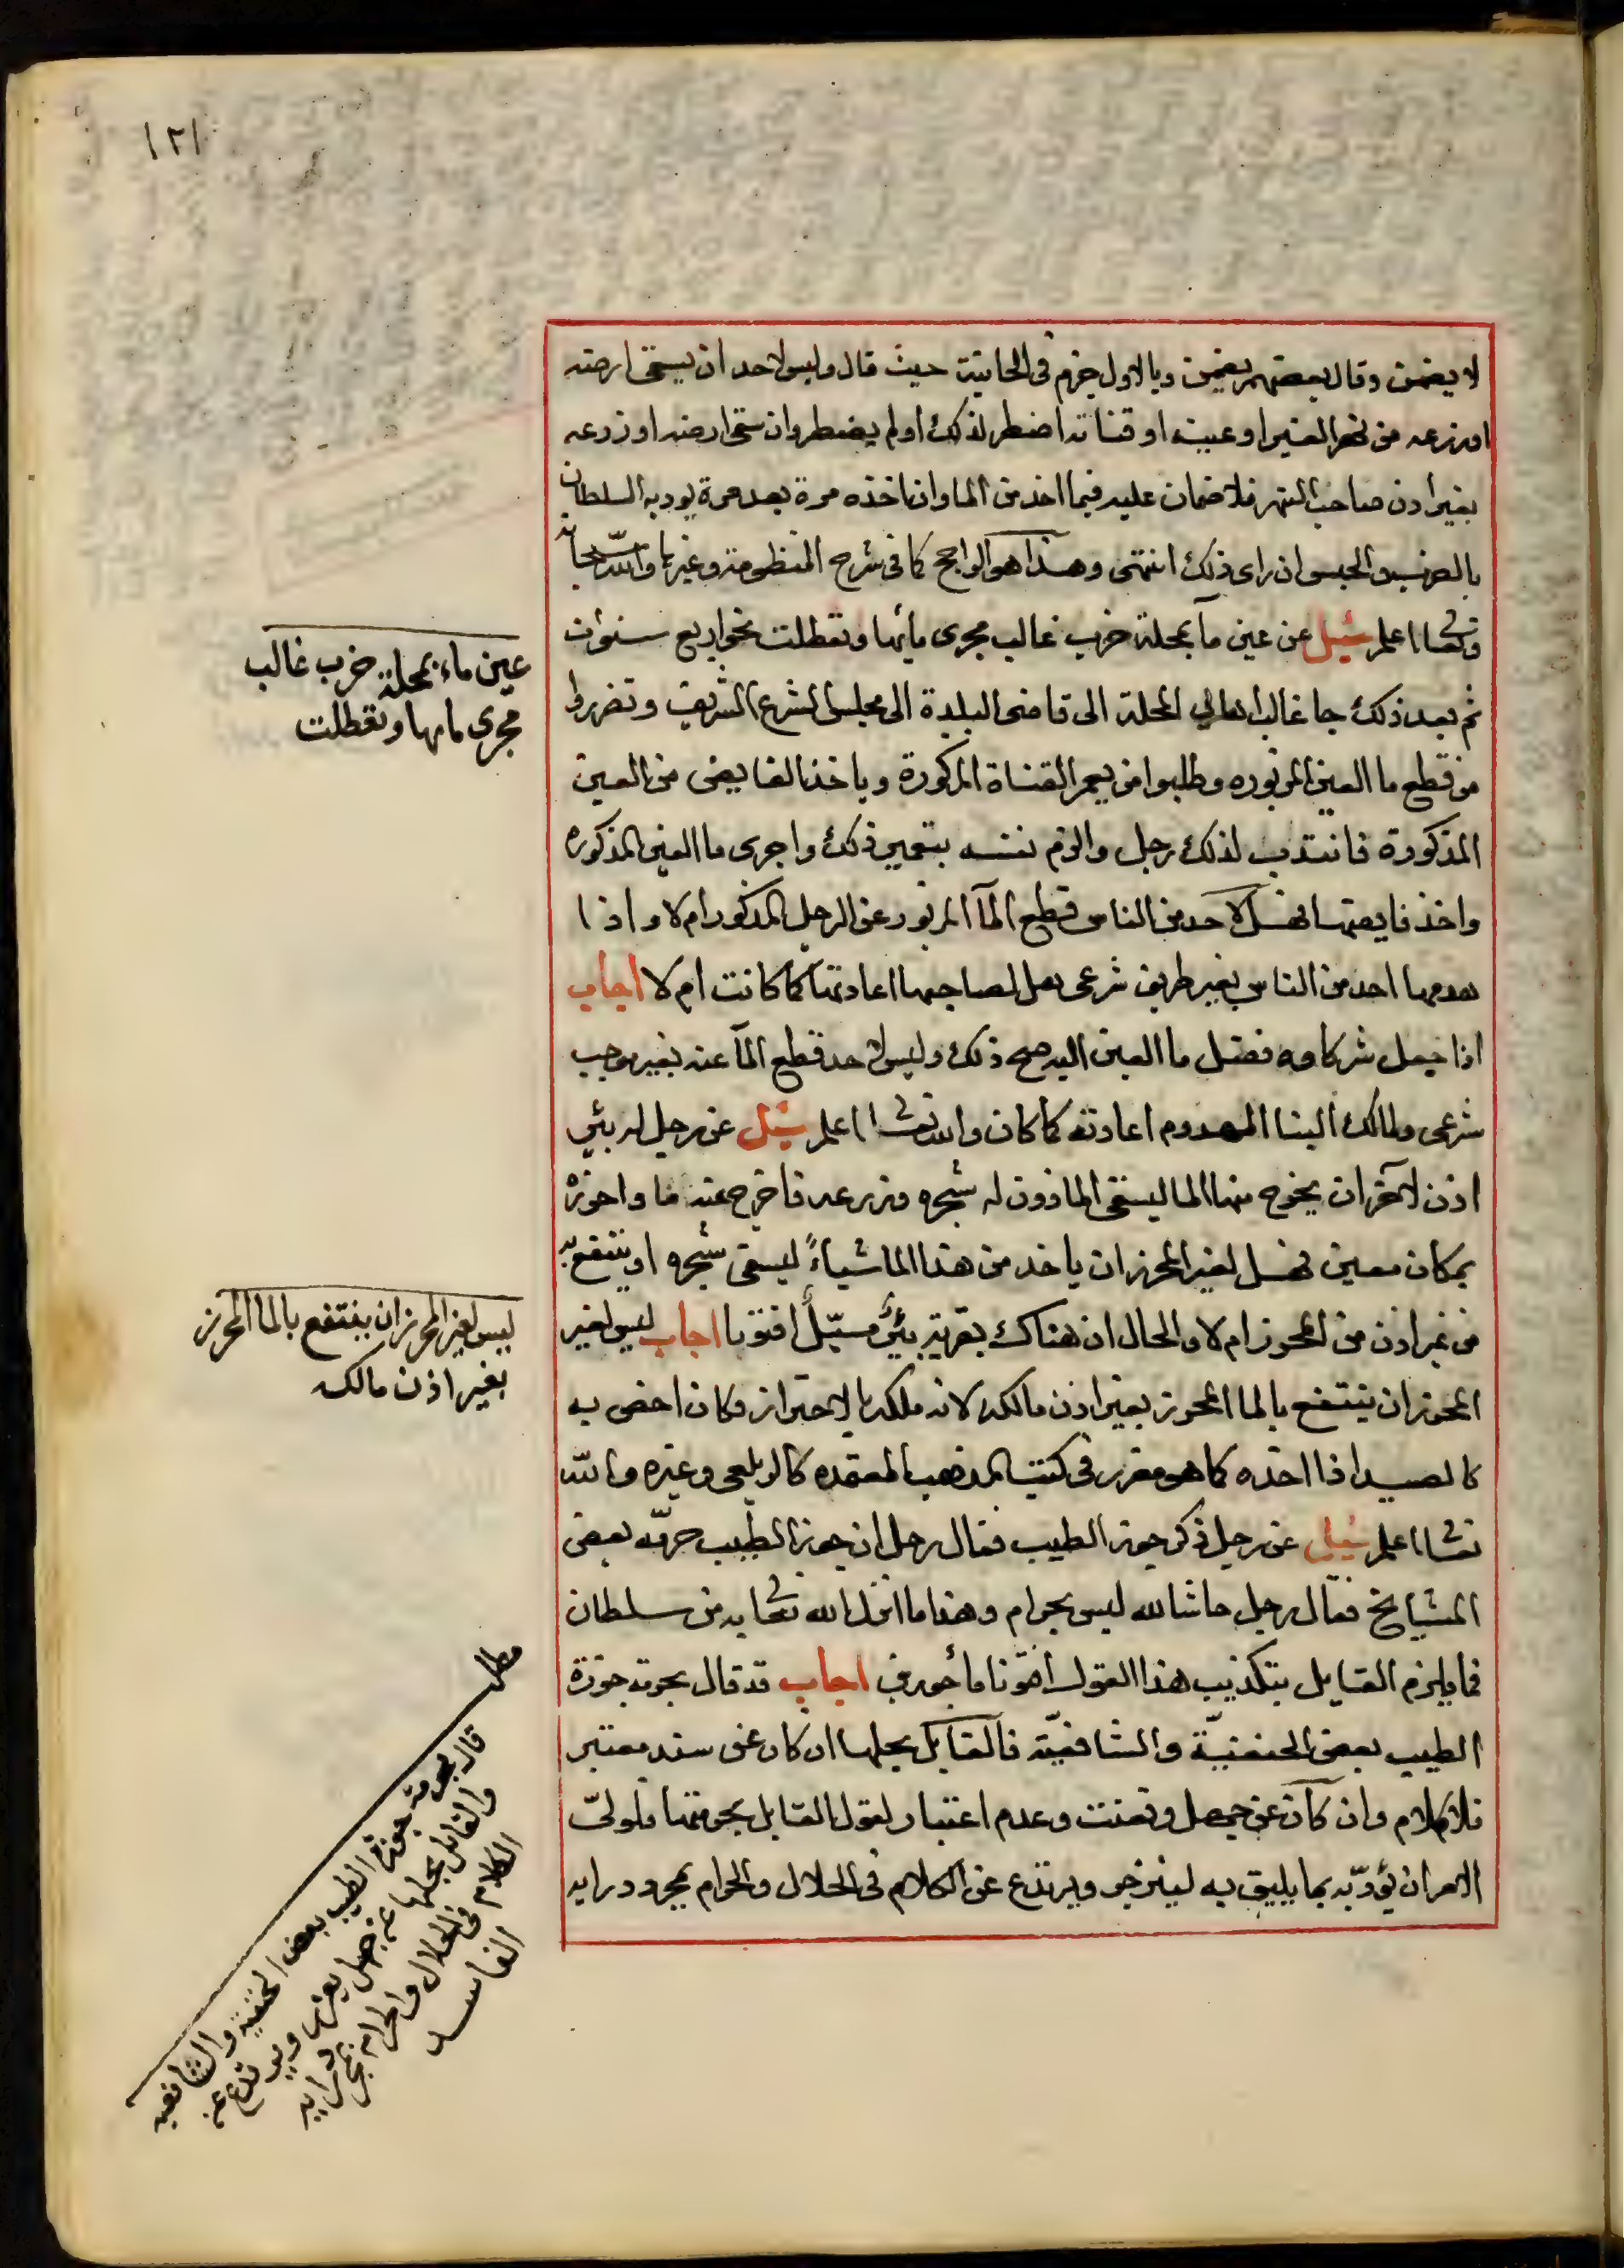 ١٢١
لا يضمن وقال بعضهم يضمن وبالاول جزم فى الخانية حيث قال وليس لاحد ان يسقى ارضه
او زرعه من نهر الغير او عينه او قناته اضطر لذلك او لم يضطر وان سقى ارضه او زرعه
بغير اذن صاحب النهر فلا ضمان عليه فيما اخذ من الما وان اخذه مرة بعد مرة يودبه السلطان
بالضرب والحبس ان راى ذلك انتهى وهذا هو الراجح كما فى شرح المنظومة وغيرها والله سبحانه
وتعالى اعلم سئل عن عين مآ بمحلة خرب غالب مجرى مائها وتعطلت نحو اربع سنوات
ثم بعد ذلك جا غالب اهالي المحلة الى قاضى البلدة الى مجلس الشرع الشريف وتضرروا
من قطع ما العين المزبوره وطلبوا من يعمر القناة المذكورة وياخذ الفايض من العين
المذكورة فانتدب لذلك رجل والزم نفسه بتعمير ذلك واجرى ما العين المذكوره
واخذ فايضها فهل لاحد من الناس قطع المآ المزبور عن الرجل المذكور ام لا واذا
هدمها احد من الناس بغير طريق شرعى هل لصاحبها اعادتها كما كانت ام لا اجاب
اذا جعل شركاوه فضل ما العين اليه صح ذلك وليس لاحد قطع المآ عنه بغير موجب
شرعى ولمالك البنا المهدوم اعادته كما كان والله تعالى اعلم سئل عن رجل له بئر
اذن لآخر ان يخرج منها الما ليسقى الماذون له شجره وزرعه فاخرج عنه ما واحرزه
بمكان معين فهل لغير المحرز ان ياخذ من هذا الما شياءً ليسقى شجره او ينتفع به
من غير اذن من المحرز ام لا والحال ان هناك بقربه بئرٌ مسبّلٌ افتونا اجاب ليس لغير
المحرز ان ينتفع بالما المحرز بغير اذن مالكه لانه ملكه بالاحتراز وكان اخص به
كالصيد اذا اخذه كما هو مقرر فى كتب المذهب المعتمده كالزيلعى وغيره والله
تعالى اعلم سئل عن رجل ذكر جوزة الطيب فقال رجل ان جوزة الطيب حرمه بعض
المشايخ فقال رجل حاشا لله ليس بحرام وهذا ما انزل الله تعالى به من سلطان
فما يلزم القايل بتكذيب هذا القول افتونا مأجورين اجاب قد قال بحرمة جوزة
الطيب بعض الحنفيّة والشافعيّة فالقايل بحلها ان كان عن سند معتبر
فلا كلام وان كان عن جهل وتعنت وعدم اعتبار لقول القايل بحرمتها فلولىّ
الامر ان يؤدّبه بما يليق به لينزجر ويرتدع عن الكلام فى الحلال والحرام بمجرد رايه
عين ماء بمحلة خرب غالب
مجرى مايها وتعطلت
ليس لغير المحرز ان ينتفع بالما المحرز
بغير اذن مالكه
مطلب
قال بحرمة جوزة الطيب بعض الحنفية والشافعيه
والقايل بحلها عن جهل يعزر ويرتدع عن
الكلام فى الحلال والحرام بمجرد رايه
الفاسد